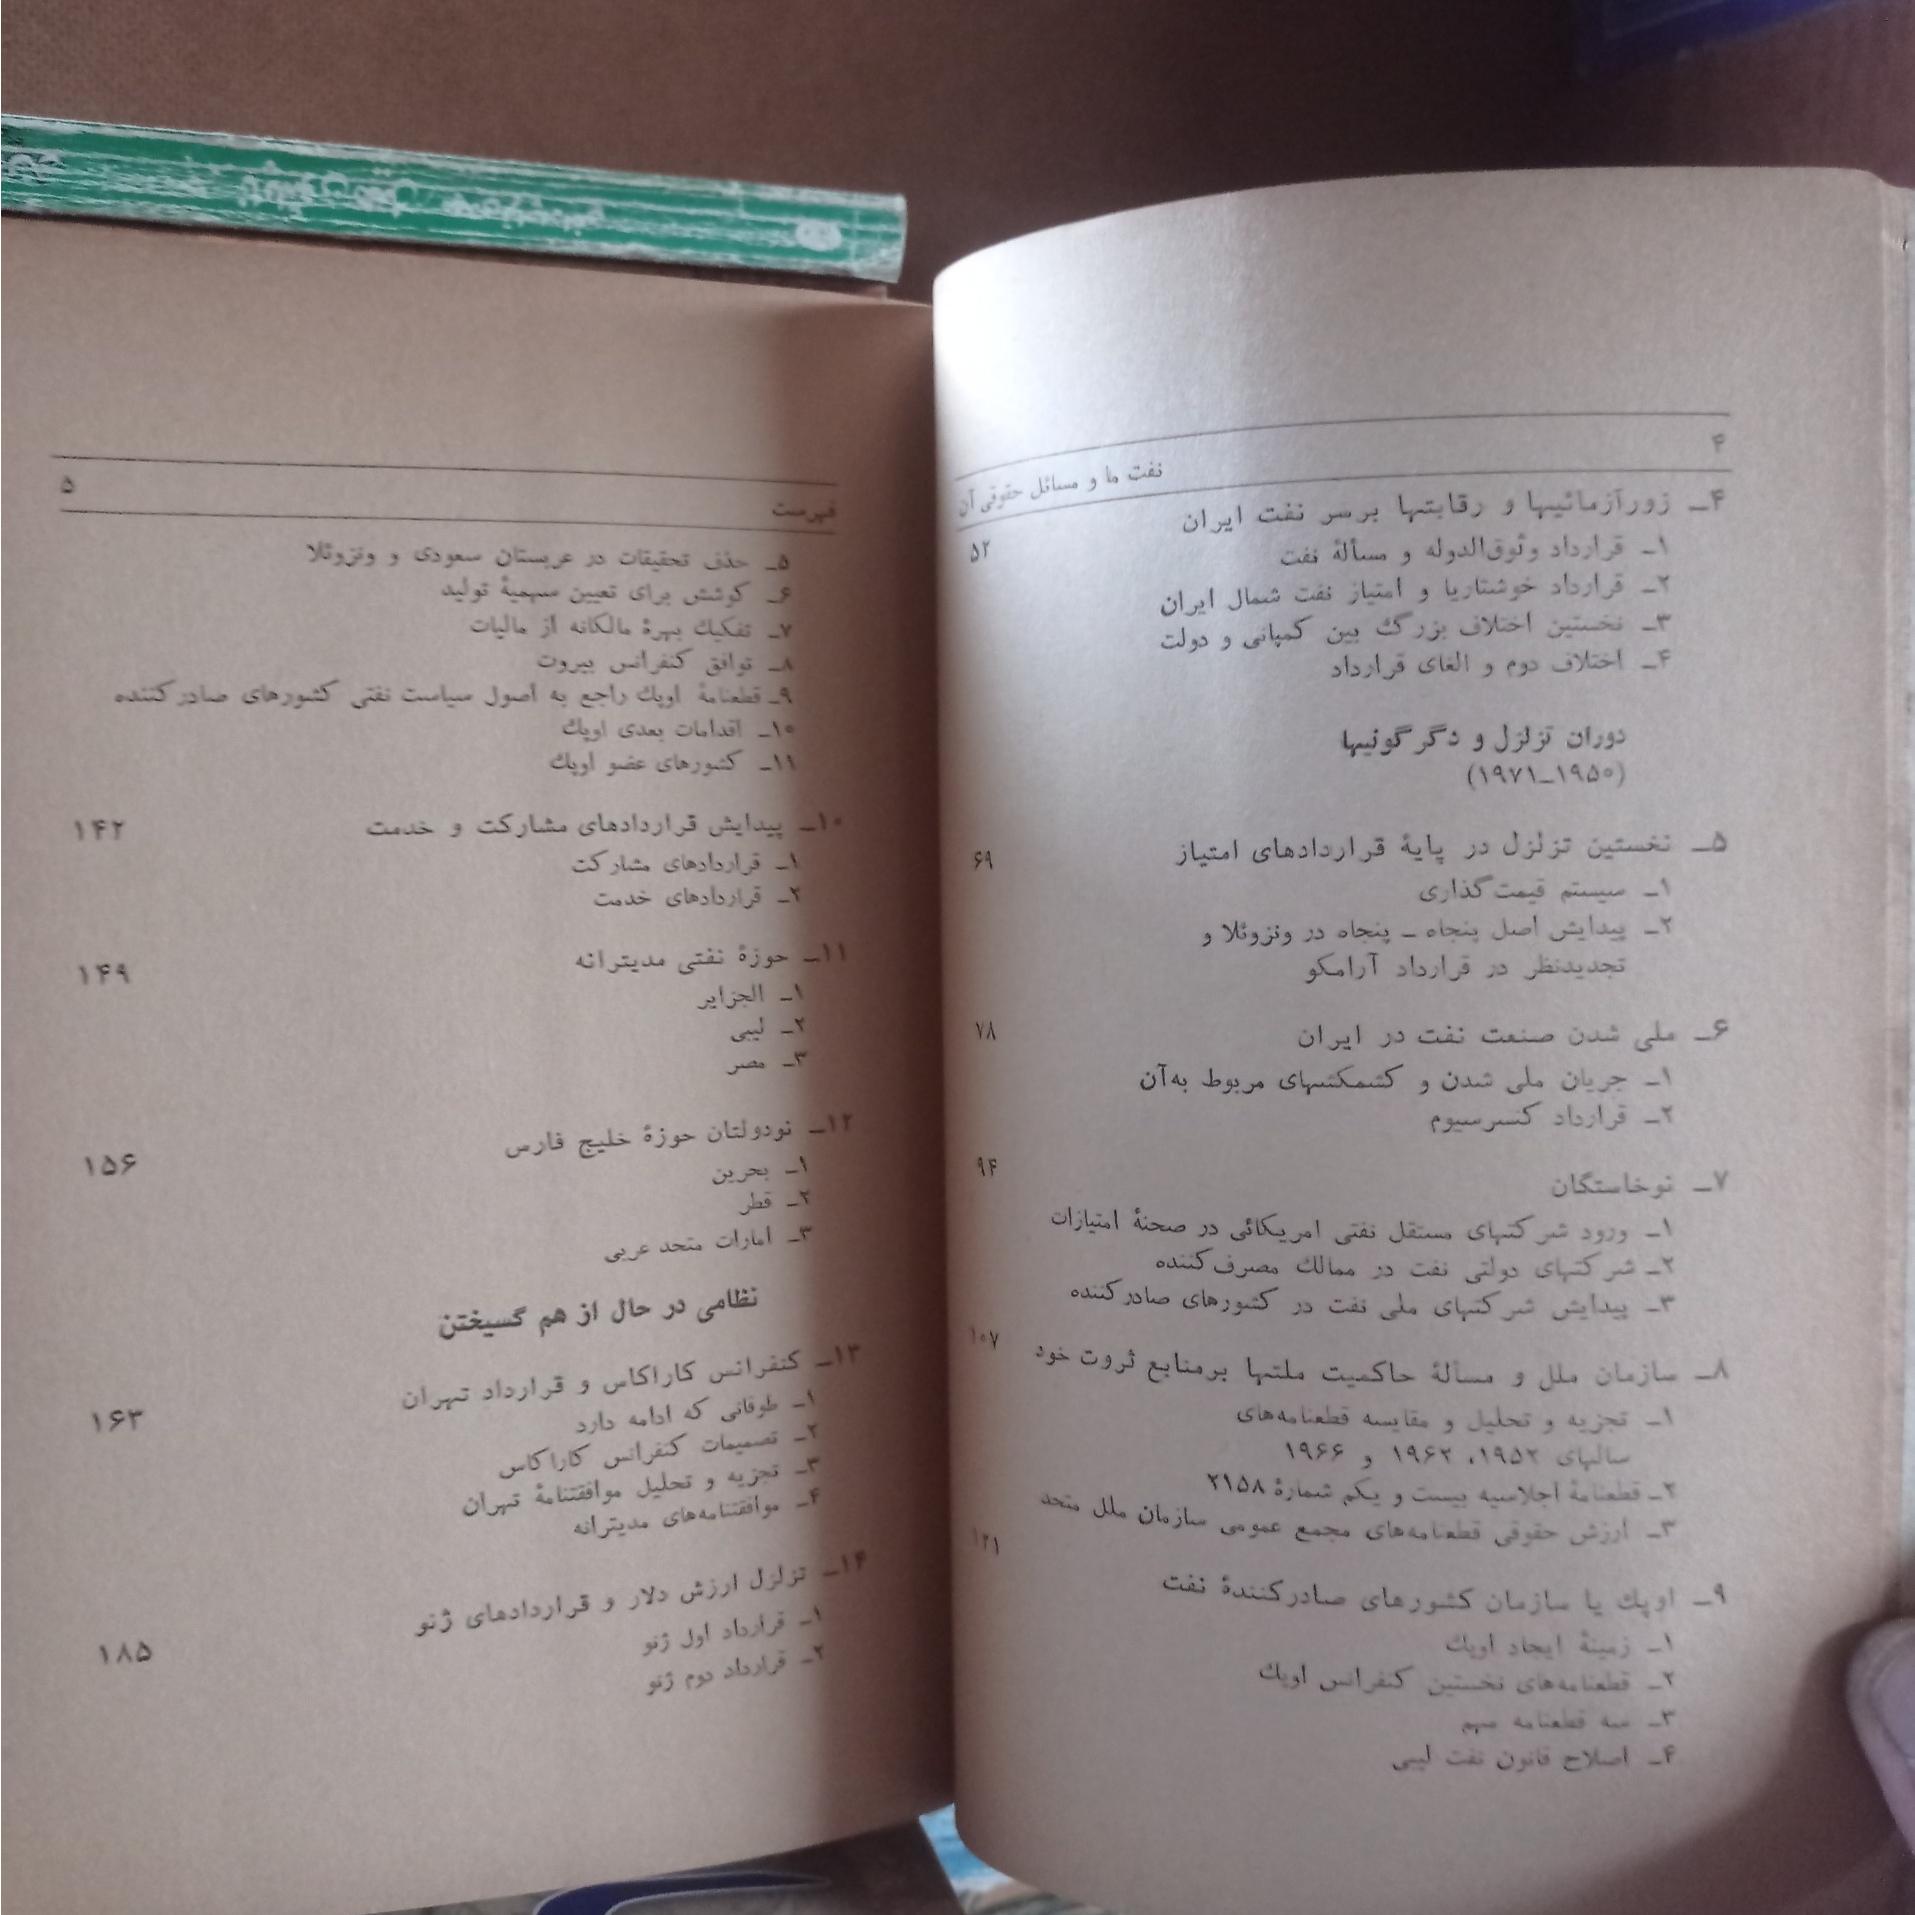 ۴
نفت ما و مسائل حقوقی آن
۴ـ زورآزمائیها و رقابتها برسر نفت ایران ۵۲
۱ـ قرارداد وثوق‌الدوله و مسألهٔ نفت
۲ـ قرارداد خوشتاریا و امتیاز نفت شمال ایران
۳ـ نخستین اختلاف بزرگ بین کمپانی و دولت
۴ـ اختلاف دوم و الغای قرارداد
دوران تزلزل و دگرگونیها
(۱۹۵۰ـ۱۹۷۱)
۵ـ نخستین تزلزل در پایهٔ قراردادهای امتیاز ۶۹
۱ـ سیستم قیمت‌گذاری
۲ـ پیدایش اصل پنجاه ـ پنجاه در ونزوئلا و
تجدیدنظر در قرارداد آرامکو
۶ـ ملی شدن صنعت نفت در ایران ۷۸
۱ـ جریان ملی شدن و کشمکشهای مربوط به‌آن
۲ـ قرارداد کنسرسیوم
۷ـ نوخاستگان ۹۴
۱ـ ورود شرکتهای مستقل نفتی امریکائی در صحنهٔ امتیازات
۲ـ شرکتهای دولتی نفت در ممالك مصرف‌کننده
۳ـ پیدایش شرکتهای ملی نفت در کشورهای صادرکننده
۸ـ سازمان ملل و مسألهٔ حاکمیت ملتها برمنابع ثروت خود ۱۰۷
۱ـ تجزیه و تحلیل و مقایسه قطعنامه‌های
سالهای ۱۹۵۲، ۱۹۶۲ و ۱۹۶۶
۲ـ قطعنامهٔ اجلاسیه بیست و یکم شمارهٔ ۲۱۵۸
۳ـ ارزش حقوقی قطعنامه‌های مجمع عمومی سازمان ملل متحد
۹ـ اوپك یا سازمان کشورهای صادرکنندهٔ نفت ۱۲۱
۱ـ زمینهٔ ایجاد اوپك
۲ـ قطعنامه‌های نخستین کنفرانس اوپك
۳ـ سه قطعنامه مهم
۴ـ اصلاح قانون نفت لیبی
فهرست ۵
۵ـ حذف تحقیقات در عربستان سعودی و ونزوئلا
۶ـ کوشش برای تعیین سهمیهٔ تولید
۷ـ تفکیك بهرهٔ مالکانه از مالیات
۸ـ توافق کنفرانس بیروت
۹ـ قطعنامهٔ اوپك راجع به اصول سیاست نفتی کشورهای صادرکننده
۱۰ـ اقدامات بعدی اوپك
۱۱ـ کشورهای عضو اوپك
۱۰ـ پیدایش قراردادهای مشارکت و خدمت ۱۴۲
۱ـ قراردادهای مشارکت
۲ـ قراردادهای خدمت
۱۱ـ حوزهٔ نفتی مدیترانه ۱۴۹
۱ـ الجزایر
۲ـ لیبی
۳ـ مصر
۱۲ـ نودولتان حوزهٔ خلیج فارس ۱۵۶
۱ـ بحرین
۲ـ قطر
۳ـ امارات متحد عربی
نظامی در حال از هم گسیختن
۱۳ـ کنفرانس کاراکاس و قرارداد تهران ۱۶۳
۱ـ طوفانی که ادامه دارد
۲ـ تصمیمات کنفرانس کاراکاس
۳ـ تجزیه و تحلیل موافقتنامهٔ تهران
۴ـ موافقتنامه‌های مدیترانه
۱۴ـ تزلزل ارزش دلار و قراردادهای ژنو ۱۸۵
۱ـ قرارداد اول ژنو
۲ـ قرارداد دوم ژنو